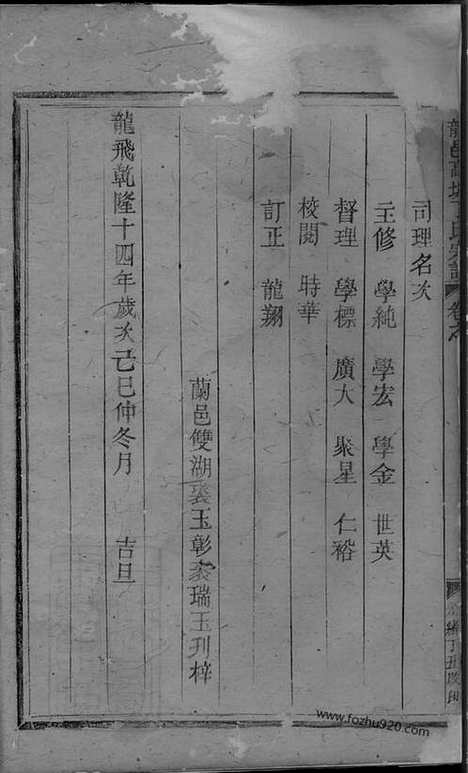 龍邑高塘丁氏宗譜 卷之
司理名次
主修 學純 學宏 學金 世英
督理 學標 廣大 聚星 仁裕
校閱 時華
訂正 龍翔
蘭邑雙湖裘玉彰裘瑞玉刋梓
龍飛乾隆十四年歲次己巳仲冬月 吉旦
www.fozhu920.com